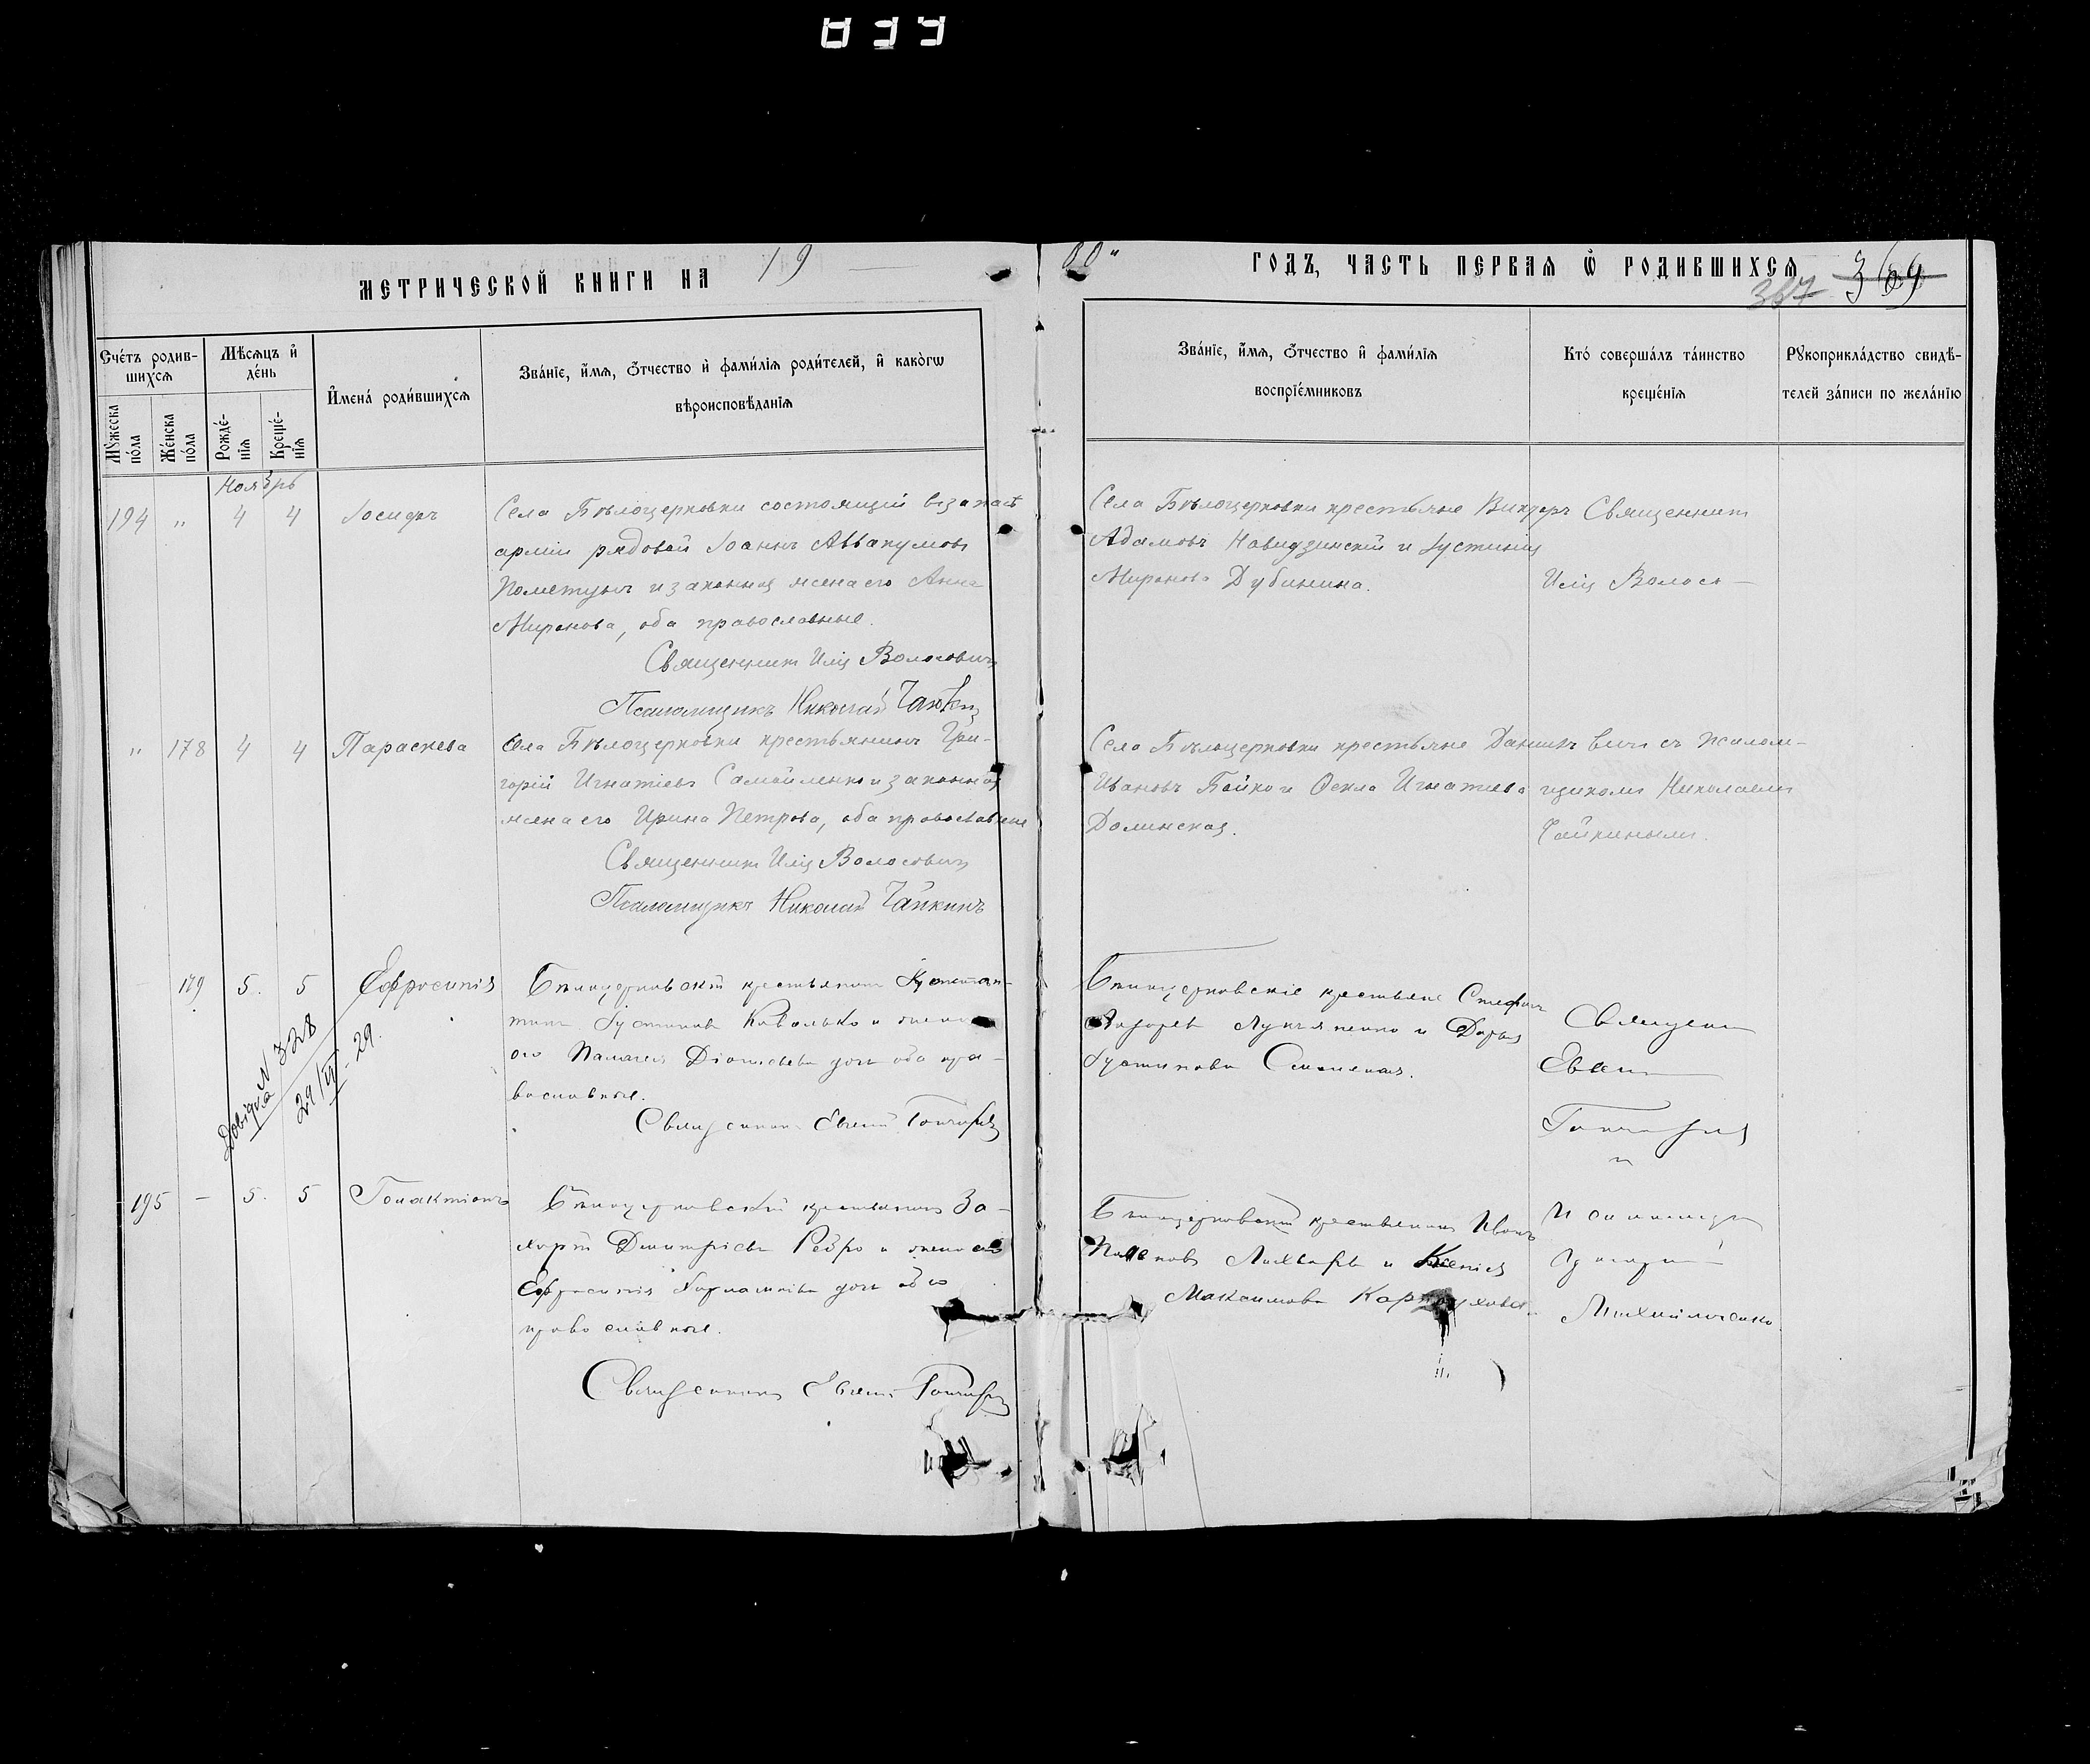 839
МЕТРИЧЕСКОЙ КНИГИ НА 19
00 ГОДЪ, ЧАСТЬ ПЕРВАЯ Ѿ РОДИВШИХСЯ 369
367
Сче́тъ родив-
шихся
Мѣсяцъ и҆
де́нь
И҆мена́ роди́вшихся
Зва́нїе, и҆́мя, ѻ҆́тчество и҆ фами́лїя роди́телей, и҆ како́гѡ
вѣроисповѣ́данїя
Мꙋ́жеска
по́ла
Же́нска
по́ла
Рожде́-
нїя
Креще́-
нїя
Зва́нїе, и҆́мя, ѻ҆́тчество и҆ фами́лїя
воспрїе́мниковъ
Кто́ соверша́лъ та́инство
креще́нїя
Рꙋкоприкла́дство свидѣ́-
телей за́писи по жела́нїю
Ноябрь
194 " 4 4 Іосифъ
Села Бѣлоцерковки состоящій въ запасѣ
арміи рядовой Іоаннъ Аввакумовъ
Пометунъ и законная жена его Анна
Миронова, оба православные.
Священникъ Илія Волосовичъ
Псаломщикъ Николай Чайкинъ
Села Бѣлоцерковки крестьяне Викторъ
Адамовъ Навидзинскій и Іустинія
Миронова Дубинина.
Священникъ
Илія Волосо-
" 178 4 4 Параскева
Села Бѣлоцерковки крестьянинъ Гри-
горій Игнатіевъ Самойленко и законная
жена его Ирина Петрова, оба православные
Священникъ Илія Волосовичъ
Псаломщикъ Николай Чайкинъ
Села Бѣлоцерковки крестьяне Даніилъ
Ивановъ Бойко и Ѳекла Игнатіева
Долинская.
вичъ съ псалом-
щикомъ Николаемъ
Чайкинымъ.
179 5. 5 Ефросинія
Бѣлоцерковскій крестьянинъ Константи-
тинъ Іустиновъ Ковалько и жена
его Пелагея Діонисіева дочь оба пра-
вославные.
Священникъ Евгеній Гончаровъ
Dовідка N 328
29/VI - 29.
Бѣлоцерковскіе крестьяне Стефанъ
Лукьяненко и Дарья
Іустинова
Священникъ
Евгеній
Гончаровъ
и
195 - 5. 5 Галактіонъ
Бѣлоцерковскій крестьянинъ За-
харій Димитріевъ Ребро и жена его
Ефросинія дочь оба
православные.
Священникъ Евгеній Гончаровъ
Бѣлоцерковскій крестьянинъ Иванъ
Лихварь и Ксенія
Максимова
Псаломщикъ
Григорій
Михайличенко.